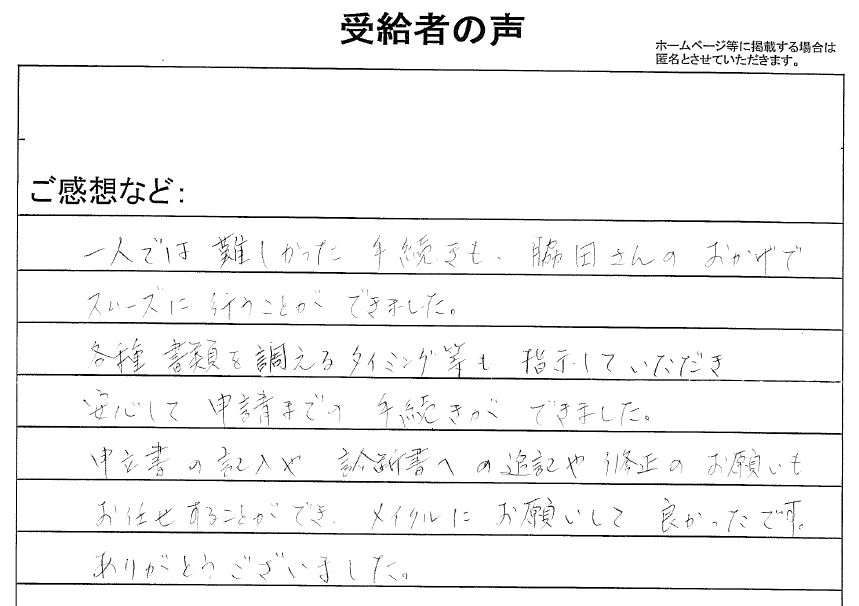 受給者の声
ホームページ等に掲載する場合は
匿名とさせていただきます。
ご感想など:
一人では難しかった手続きも、脇田さんのおかげで
スムーズに行うことができました。
各種書類を調えるタイミング等も指示していただき
安心して申請までの手続きができました。
申立書の記入や診断書への追記や修正のお願いも
お任せすることができ、メイクルにお願いして良かったです。
ありがとうございました。